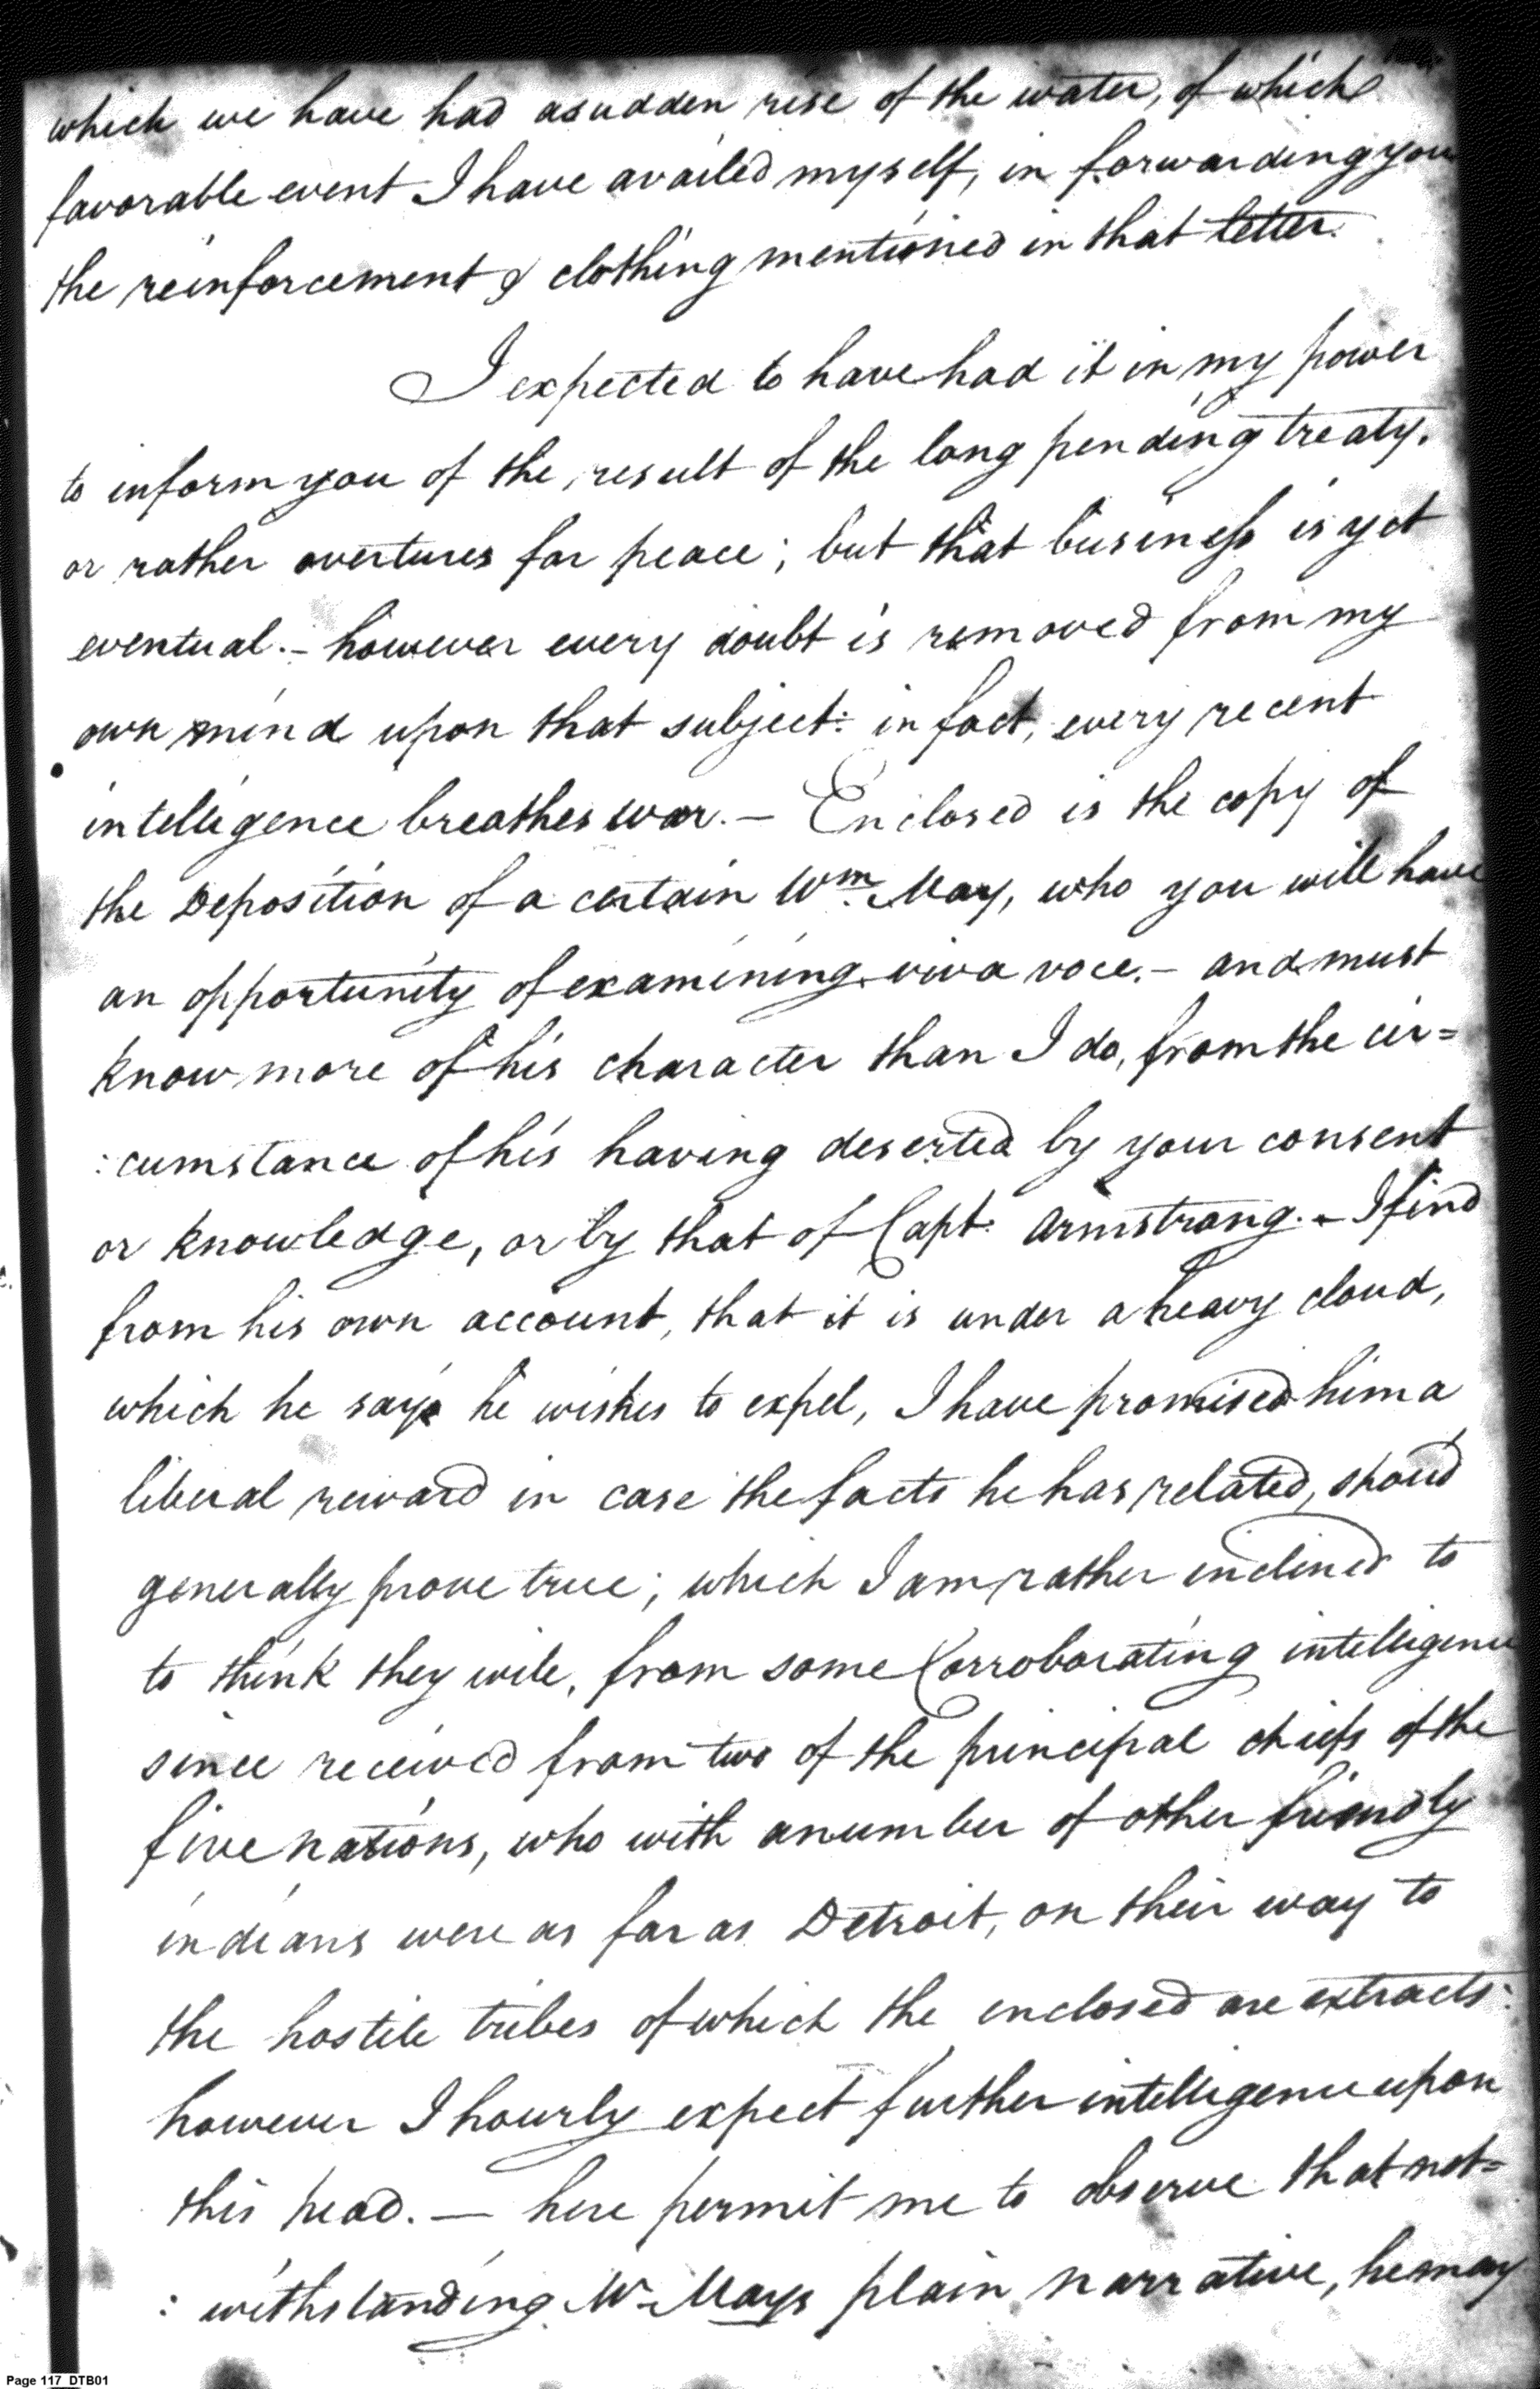 which we have had a sudden rise of the water, of which
favorable event I have availed myself, in forwarding you
the reinforcement & clothing mentioned in that letter.
I expected to have had it in my power
to inform you of the result of the long pending treaty.
or rather overtures for peace; but that business is yet
eventual. – however every doubt is removed from my
own mind upon that subject: in fact, every recent
intelligence breathes war. – Enclosed is the copy of
the Deposition of a certain Wm. May, who you will have
an opportunity of examining viva voce. – and must
know more of his character than I do, from the cir=
:cumstance of his having deserted by your consent
or knowledge, or by that of Capt: Armstrong. – I find
from his own account, that it is under a heavy cloud,
which he says he wishes to expel, I have promised him a
liberal reward in case the facts he has related, shou'd
generally prove true; which I am rather inclined to
to think they will, from some Corroborating intelligence
since received from two of the principal chiefs of the
five nations, who with a number of other friendly
indians were as far as Detroit, on their way to
the hostile tribes of which the enclosed are extracts:
however I hourly expect further intelligence upon
this head. — here permit me to observe that not=
: withstanding Mr Mays plain narrative, he may
Page 117 DTB01